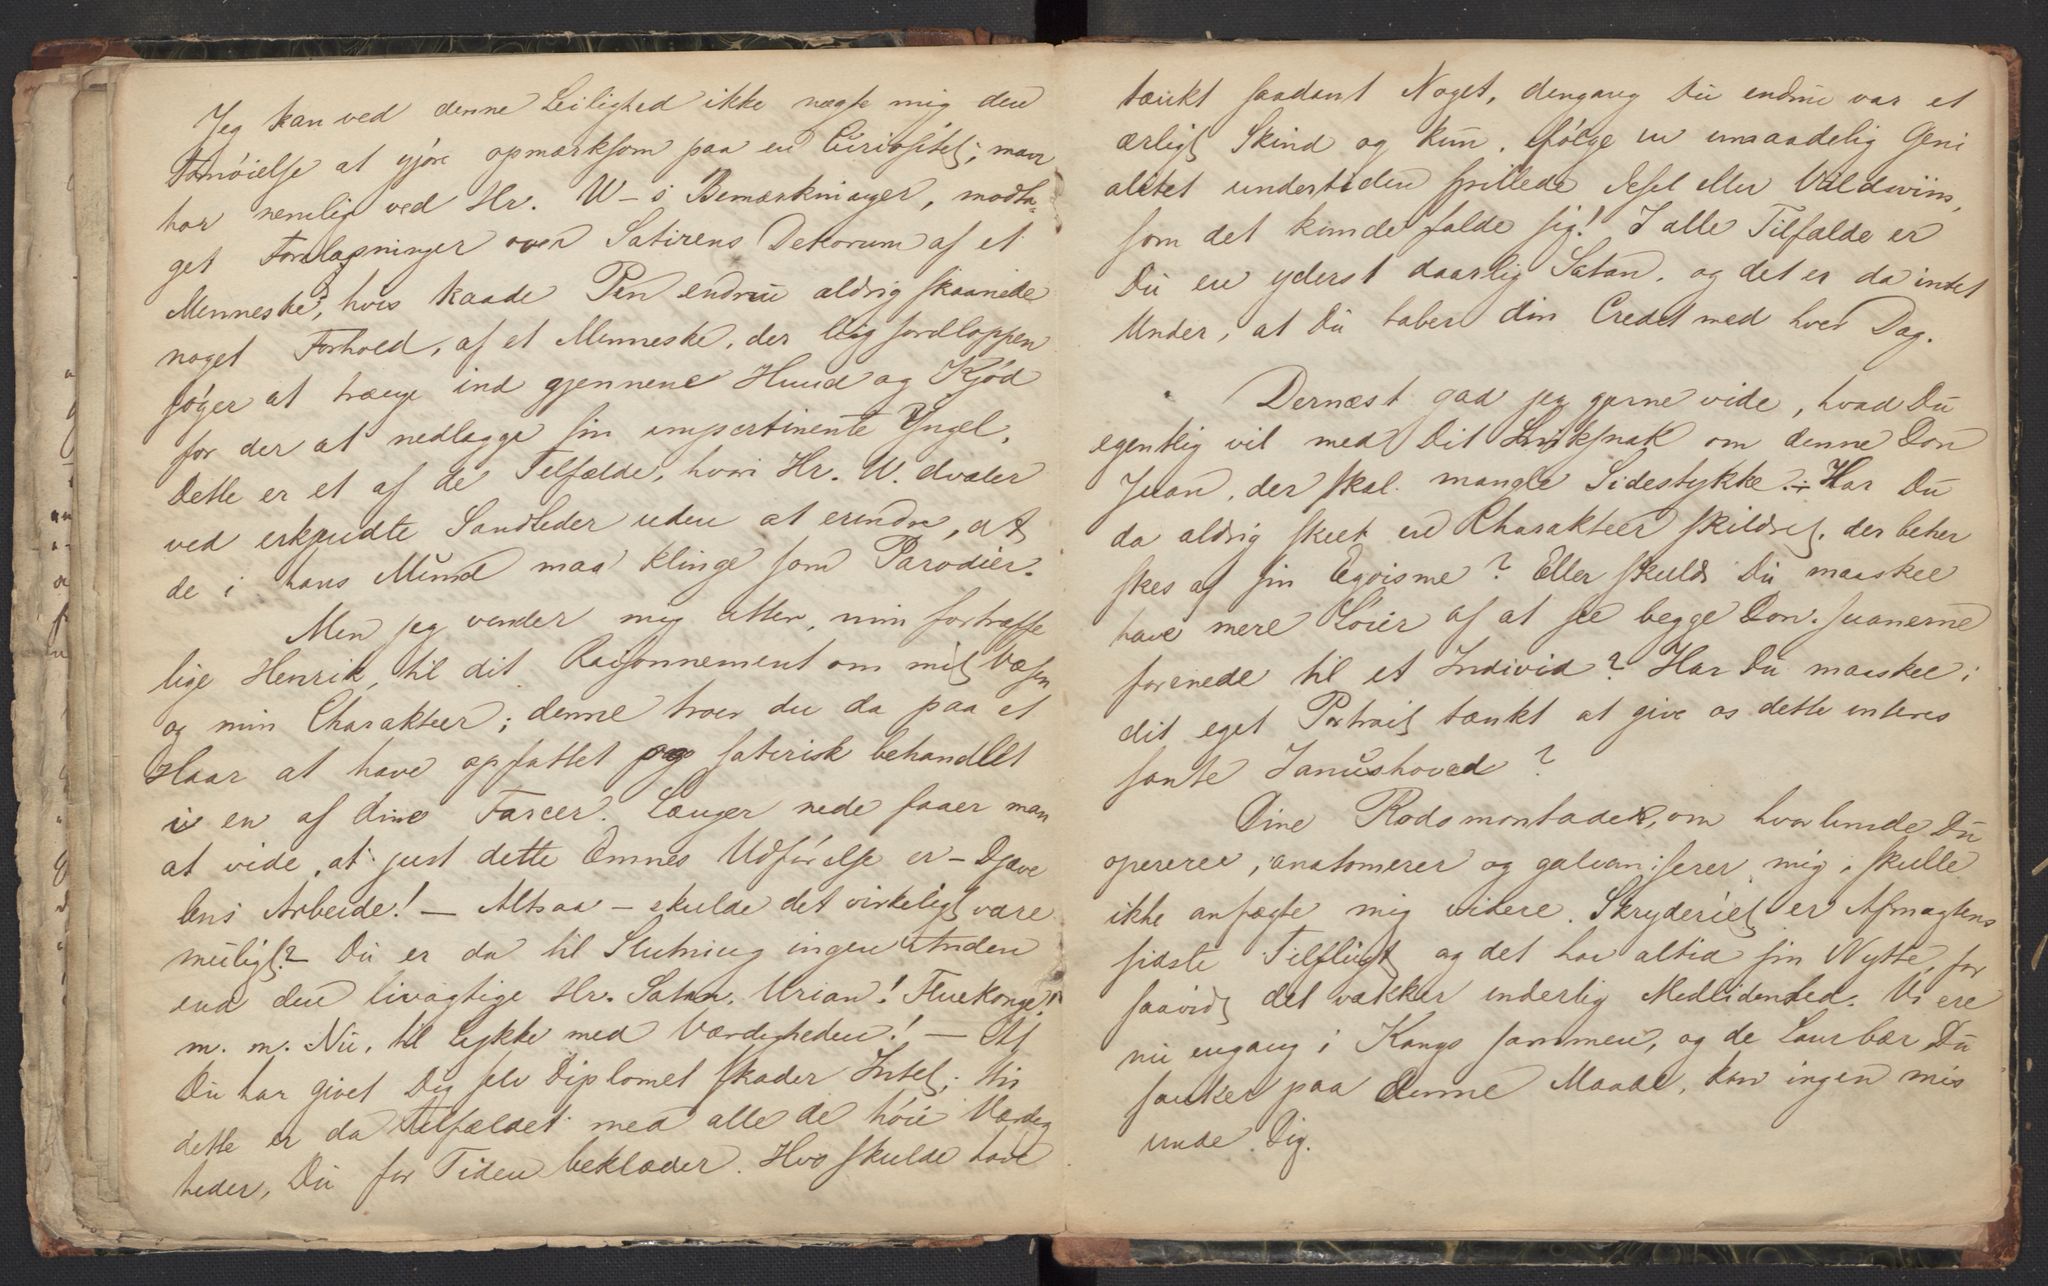 Jeg kan ved denne Leilighed ikke nægte mig den
Fornøielse at gjøre opmærksom paa en Curiositet; man
har nemlig ved Hr. W–s Bemærkninger, modta-
get Forelæsninger over Satirens Dekorum af et
Menneske, hvis kaade Pen endnu aldrig skaanede
noget Forhold, af et Menneske, der lig jordloppen
søger at trænge ind gjennem Huud og Kjød
for der at nedlægge sin impertinente Yngel.
Dette er et af de Tilfælde, hvori Hr. W. dvæler
ved erkjendte Sandheder uden at erindre, at
de i hans Mund maa klinge som Parodier.
Men jeg vender mig atter, min fortræffe
lige Henrik, til dit Raisonnement om mit Væsen
og min Charakteer; denne troer du da paa et
Haar at have opfattet og satirisk behandlet
i en af dine Farcer. Længer nede faaer man
at vide, at just dette Emnes Udførelse er – Djæve
lens Arbeide! – Altsaa – skulde det virkeligt være
muligt? – Du er da til Slutning ingen Anden
end den livagtige Hr. Satan. Urian! Fluekonge!
m. m. Nu, til Lykke med Værdigheden! – At
Du har givet Dig selv Diplomet skader Intet; thi
dette er da tilfældet med alle de høie Værdig
heder, Du for Tiden beklæder. Hvo skulde have
tænkt saadant Noget, dengang Du endnu var et
ærligt Skind og kun, ifølge en umaadelig Geni
alitet undertiden spillede Esel eller Vildsviin,
som det kunde falde sig! I alle Tilfælde er
Du en yderst daarlig Satan, og det er da intet
Under, at Du taber din Credit med hver Dag.
Dernæst gad jeg gjerne vide, hvad Du
egentlig vil med Dit Sniksnak om denne Don
Juan, der skal mangle Sidestykke. – Har Du
da aldrig seet en Charakteer skildret, der beher
skes af sin Egoisme? Eller skulde Du maaskee
have mere Løier af at see begge Don-Juanerne
forenede til et Individ? Har Du maaskee i
dit eget Portrait tænkt at give os dette interes
sante Janushoved?
Dine Rodomontader, om hvorlunde Du
opererer, anatomerer og galvaniserer mig, skulle
ikke anfægte mig videre. Skryderiet er Afmagtens
sidste Tilflugt og det har altid sin Nytte, for
saavidt det vækker inderlig Medlidenhed. Vi ere
nu engang i Kangs sammen, og de Laurbær Du
sanker paa denne Maade, kan ingen mis
unde Dig.